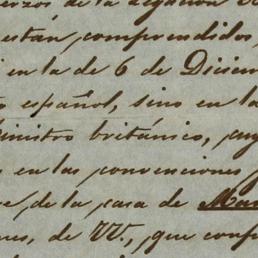 erzos de la legacion
están, comprendidos,
en la de 6 de Diciem
español, sino en la
inistro británico, cuy
en las convenciones
de la casa de Ma
es, de VV., que conf